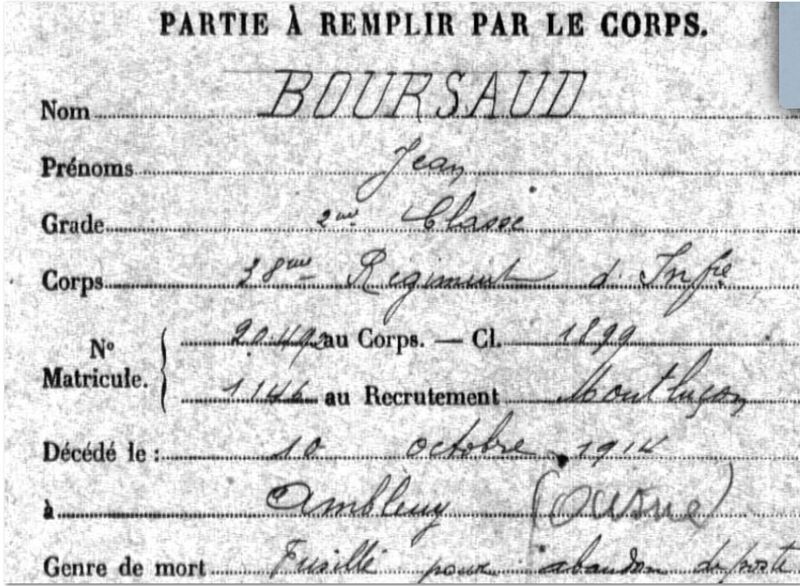 PARTIE À REMPLIR PAR LE CORPS.
Nom BOURSAUD
Prénoms Jean
Grade 2me Classe
Corps 38me Régiment d'Infie
20.492 au Corps. — Cl. 1899
N° Matricule.
1146 au Recrutement Montluçon
Décédé le : 10 octobre 1914
à Ambleny (Aisne)
Genre de mort Fusillé pour abandon de poste